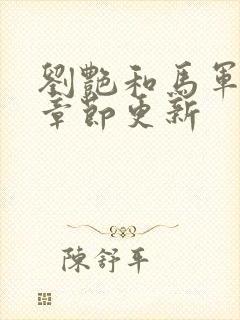 劉艷和馬軍
章節更新
陳舒平